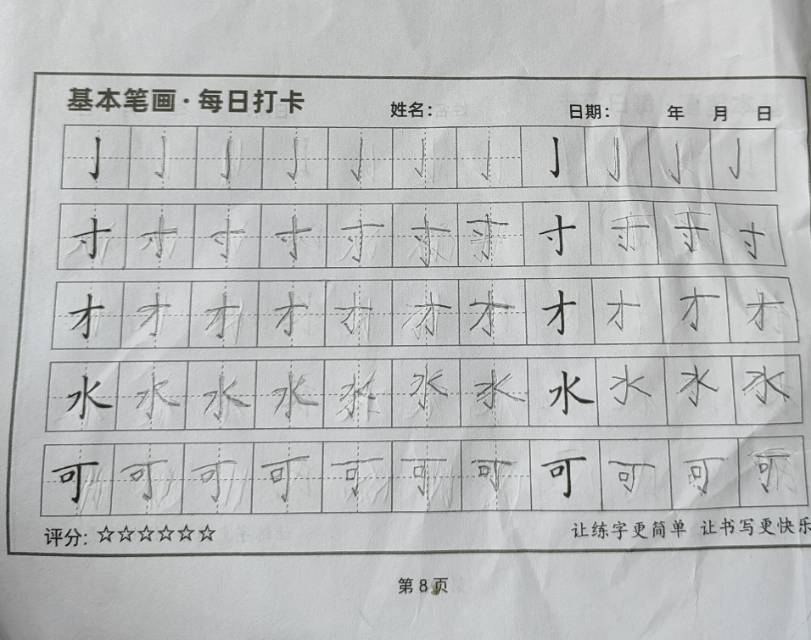 基本笔画·每日打卡 姓名: 日期: 年 月 日
亅 亅 亅 亅 亅 亅 亅 亅 亅 亅 亅
寸 寸 寸 寸 寸 寸 寸 寸 寸 寸 寸
才 才 才 才 才 才 才 才 才 才 才
水 水 水 水 水 水 水 水 水 水 水
可 可 可 可 可 可 可 可 可 可 可
评分: ☆☆☆☆☆☆ 让练字更简单 让书写更快乐
第8页